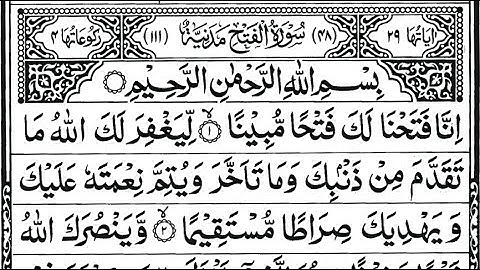 اٰیاتھا ۲۹ (۴۸) سُوْرَۃُ الْفَتْحِ مَدَنِیَّۃٌ (۱۱۱) رکوعاتھا ۴
بِسْمِ اللّٰهِ الرَّحْمٰنِ الرَّحِیْمِ
اِنَّا فَتَحْنَا لَكَ فَتْحًا مُّبِیْنًا ۱ لِّیَغْفِرَ لَكَ اللّٰهُ مَا
تَقَدَّمَ مِنْ ذَنْۢبِكَ وَمَا تَاَخَّرَ وَیُتِمَّ نِعْمَتَهٗ عَلَیْكَ
وَیَهْدِیَكَ صِرَاطًا مُّسْتَقِیْمًا ۲ وَّیَنْصُرَكَ اللّٰهُ